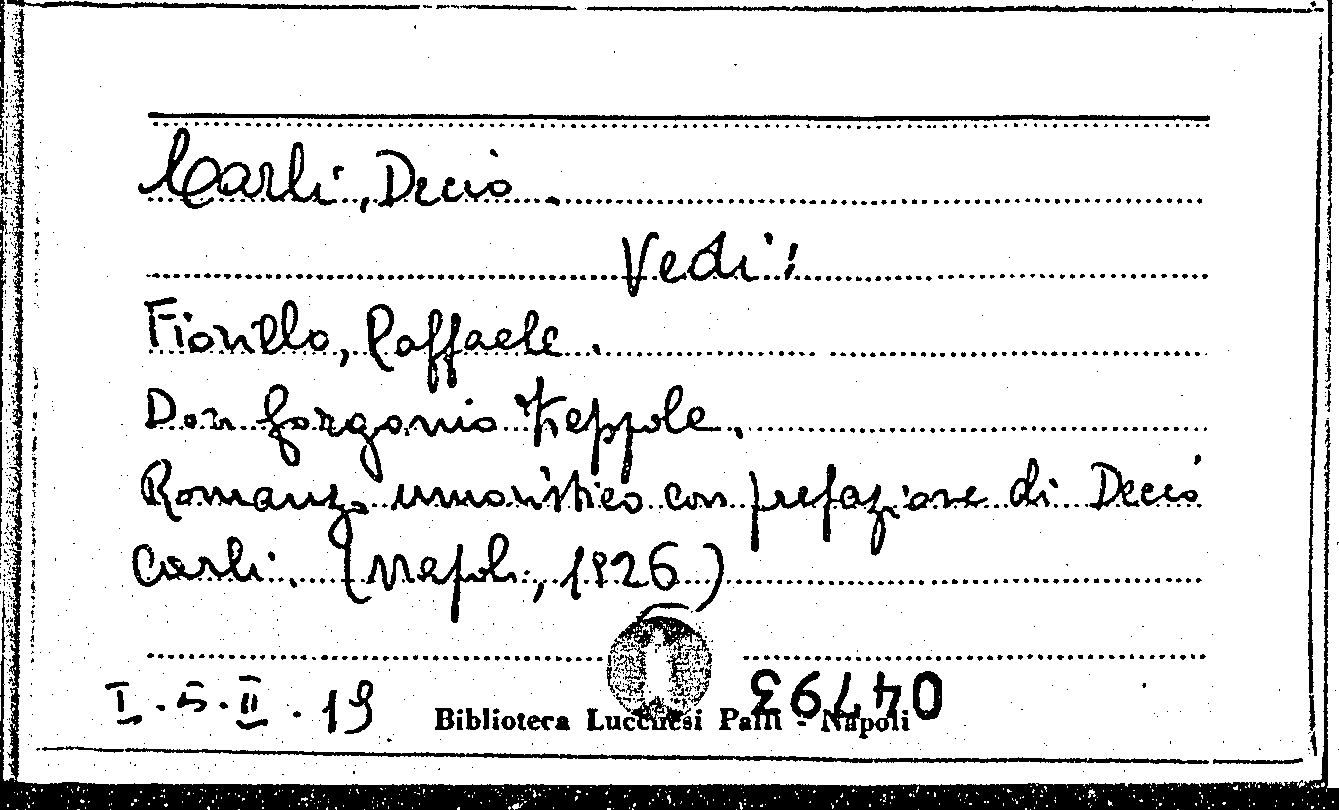 Carli, Decio.
Vedi:
Fiorillo, Raffaele.
Don Gorgonio Treppole.
Romanzo umoristico con prefazione di Decio
Carli. (Napoli, 1926)
I.5.II.19
Biblioteca Lucchesi Palli - Napoli
04793